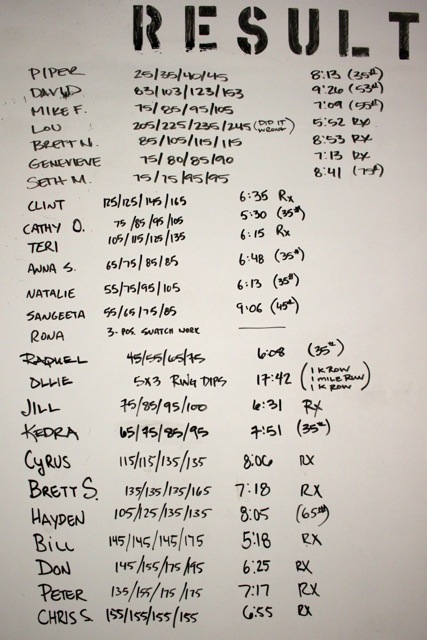 RESULT
PIPER 25/35/40/45 8:13 (35#)
DAVID 83/103/123/153 9:26 (53#)
MIKE F. 75/85/95/105 7:09 (55#)
LOU 205/225/235/245 (DID IT WRONG) 5:52 RX
BRETT N. 85/105/115/115 8:53 RX
GENEVIEVE 75/80/85/90 7:13 RX
SETH M. 75/75/95/95 8:41 (75#)
CLINT 125/125/145/165 6:35 RX
CATHY O. 75/85/95/105 5:30 (35#)
TERI 105/115/125/135 6:15 RX
ANNA S. 65/75/85/85 6:48 (35#)
NATALIE 55/75/95/105 6:13 (35#)
SANGEETA 55/65/75/85 9:06 (45#)
RONA 3-POS. SNATCH WORK
RAQUEL 45/55/65/75 6:08 (35#)
OLLIE 5X3 RING DIPS 17:42 (1K ROW 1 MILE RUN 1K ROW)
JILL 75/85/95/100 6:31 RX
KEDRA 65/75/85/95 7:51 (35#)
CYRUS 115/115/135/135 8:06 RX
BRETT S. 135/135/175/165 7:18 RX
HAYDEN 105/125/135/135 8:05 (65#)
BILL 145/145/145/175 5:18 RX
DON 145/155/175/95 6:25 RX
PETER 135/155/175/175 7:17 RX
CHRIS S. 155/155/155/155 6:55 RX